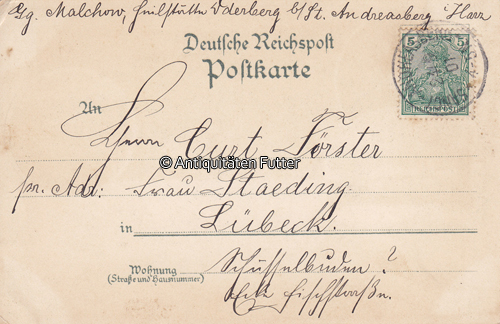 Gg. Malchow, Heilstätte Oderberg b/St. Andreasberg i Harz
Deutsche Reichspost
Postkarte
5 5
REICHSPOST
An
Herrn Curt Förster
© Antiquitäten Futter
pr. Adr: Frau Staeding
in Lübeck.
Wohnung Schüsselbuden?
(Straße und Hausnummer)
Eck Fischstraße.